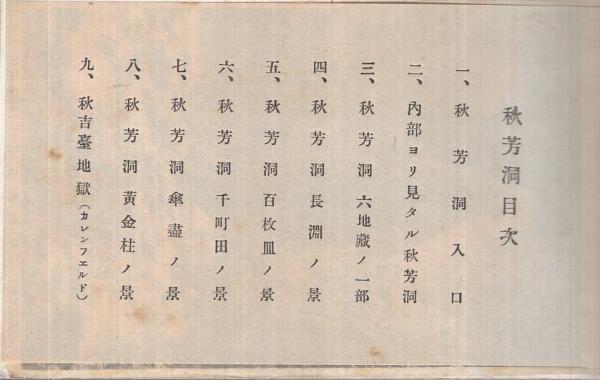 秋芳洞目次
一、秋芳洞入口
二、內部ヨリ見タル秋芳洞
三、秋芳洞六地藏ノ一部
四、秋芳洞長淵ノ景
五、秋芳洞百枚皿ノ景
六、秋芳洞千町田ノ景
七、秋芳洞傘盡ノ景
八、秋芳洞黃金柱ノ景
九、秋吉臺地獄(カレンフエルド)